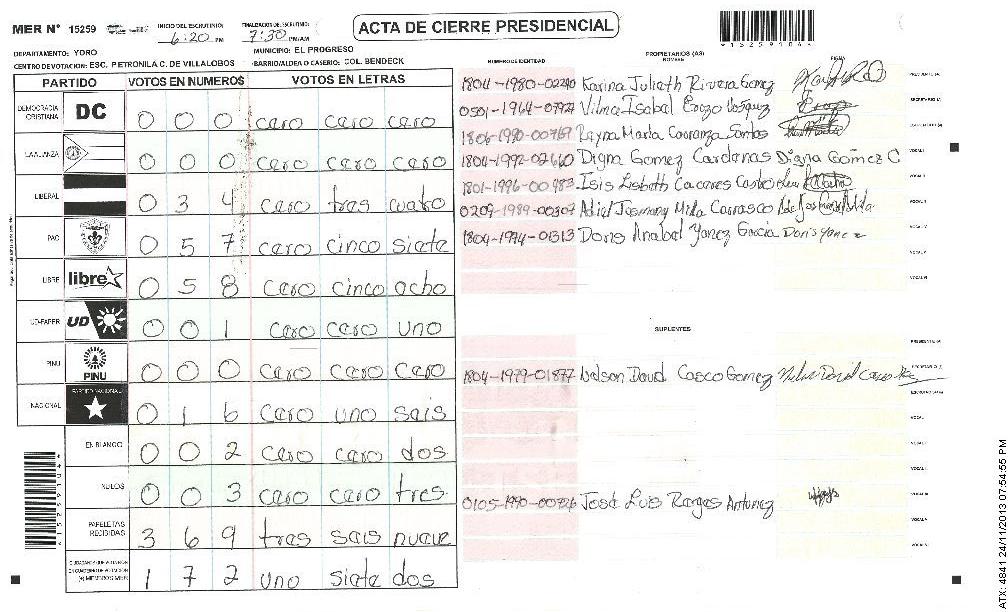 MER N° 15259 INICIO DEL ESCRUTINIO: 6:20 PM FINALIZACION DEL ESCRUTINIO: 7:30 PM/AM ACTA DE CIERRE PRESIDENCIAL
DEPARTAMENTO: YORO MUNICIPIO: EL PROGRESO
CENTRO DE VOTACION: ESC. PETRONILA C. DE VILLALOBOS BARRIO/ALDEA O CASERIO: COL. BENDECK
PARTIDO VOTOS EN NUMEROS VOTOS EN LETRAS
DEMOCRACIA CRISTIANA DC 0 0 0 cero cero cero
LA ALIANZA 0 0 0 cero cero cero
LIBERAL 0 3 4 cero tres cuatro
PAC 0 5 7 cero cinco siete
LIBRE libre 0 5 8 cero cinco ocho
UD-FAPER UD 0 0 1 cero cero uno
PINU PINU 0 0 0 cero cero cero
NACIONAL PARTIDO NACIONAL 0 1 6 cero uno seis
EN BLANCO 0 0 2 cero cero dos
NULOS 0 0 3 cero cero tres
PAPELETAS RECIBIDAS 3 6 9 tres seis nueve
1 7 2 uno siete dos
NUMERO DE IDENTIDAD PROPIETARIOS (AS) NOMBRE FIRMA
1804-1980-02240 Karina Julieth Rivera Gomez PRESIDENTE (A)
0501-1964-07927 Vilma Isabel Erazo Vasquez SECRETARIO (A)
1806-1990-00769 Reyna Marta Carranza Santos
1804-1992-02660 Digna Gomez Cardenas Digna Gómez C
1801-1996-00483 Isis Lisbeth Caceres Castro
0209-1989-00307 Adiel Josmany Milla Carrasco
1804-1974-01313 Doris Anabel Yanez Garcia Doris Yanez
SUPLENTES
PRESIDENTE (A)
1804-1979-01877 Nelson David Casco Gomez SECRETARIO (A)
ESCRUTADOR (A)
0105-1990-00726 José Luis Ranges Antunez
4152591044
ATX: 4841 24/11/2013 07:54:55 PM